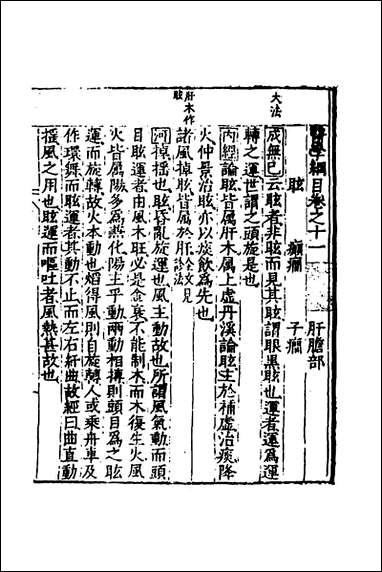 醫學綱目卷之十一　肝膽部
眩　癲癇　子癇
大法
成無已云眩者非眩而見其眩謂眼黑眩也運者運爲運
轉之運世謂之頭旋是也
內經論眩皆屬肝木屬上虛丹溪論眩主於補虛治痰降
火仲景治眩亦以痰飲爲先也
肝木作眩
諸風掉眩皆屬於肝全文見診法
河掉搖也眩昏亂旋運也風主動故也所謂風氣動而頭
目眩運者由風木旺必是金衰不能制木而木復生火風
火皆屬陽多爲兼化陽主乎動兩動相摶則頭目爲之眩
運而旋轉故火本動也焰得風則自旋轉人或乘舟車及
作環舞而眩運者其動不止而左右紆曲故經曰曲直動
搖風之用也眩運而嘔吐者風熱甚故也